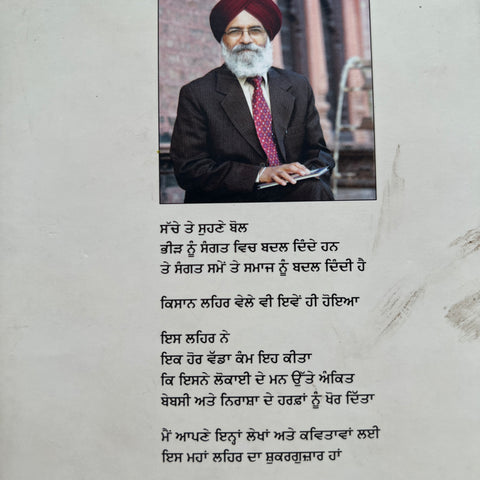 ਸੱਚੇ ਤੇ ਸੁਹਣੇ ਬੋਲ
ਭੀੜ ਨੂੰ ਸੰਗਤ ਵਿਚ ਬਦਲ ਦਿੰਦੇ ਹਨ
ਤੇ ਸੰਗਤ ਸਮੇਂ ਤੇ ਸਮਾਜ ਨੂੰ ਬਦਲ ਦਿੰਦੀ ਹੈ
ਕਿਸਾਨ ਲਹਿਰ ਵੇਲੇ ਵੀ ਇਵੇਂ ਹੀ ਹੋਇਆ
ਇਸ ਲਹਿਰ ਨੇ
ਇਕ ਹੋਰ ਵੱਡਾ ਕੰਮ ਇਹ ਕੀਤਾ
ਕਿ ਇਸਨੇ ਲੋਕਾਈ ਦੇ ਮਨ ਉੱਤੇ ਅੰਕਿਤ
ਬੇਬਸੀ ਅਤੇ ਨਿਰਾਸ਼ਾ ਦੇ ਹਰਫ਼ਾਂ ਨੂੰ ਖੋਰ ਦਿੱਤਾ
ਮੈਂ ਆਪਣੇ ਇਨ੍ਹਾਂ ਲੇਖਾਂ ਅਤੇ ਕਵਿਤਾਵਾਂ ਲਈ
ਇਸ ਮਹਾਂ ਲਹਿਰ ਦਾ ਸ਼ੁਕਰਗੁਜ਼ਾਰ ਹਾਂ